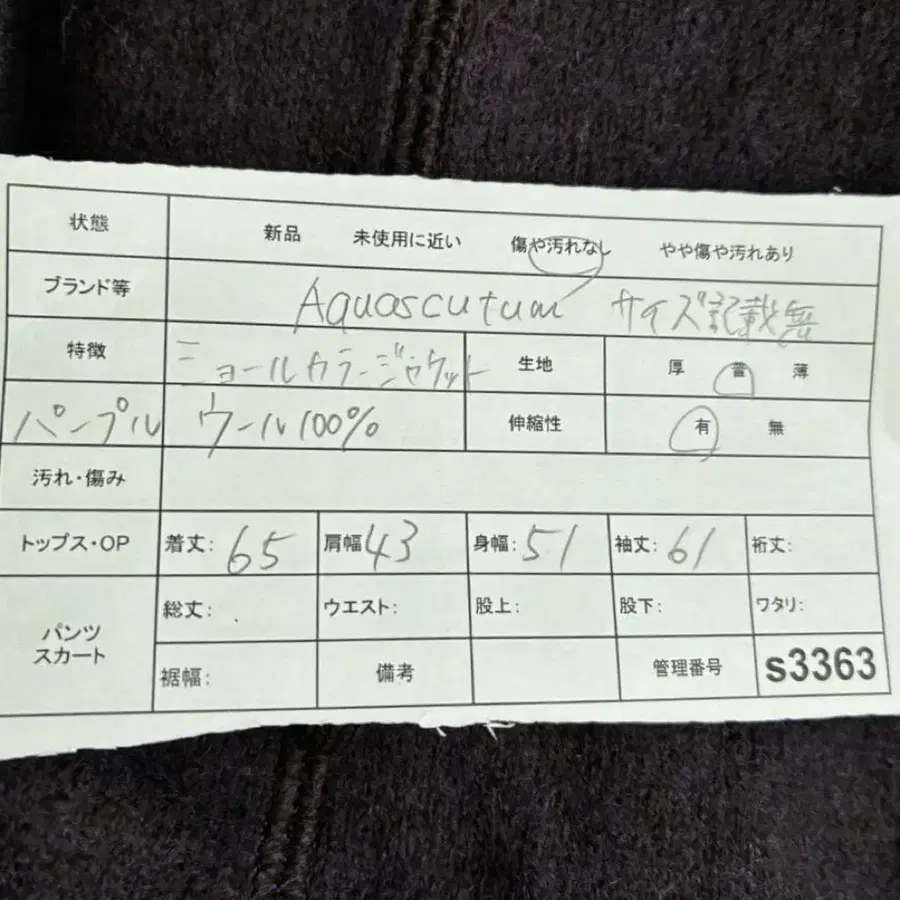 状態 新品 未使用に近い 傷や汚れなし やや傷や汚れあり
ブランド等 Aquascutum サイズ記載無
特徴 ショールカラージャケット 生地 厚 普 薄
パープル ウール100% 伸縮性 有 無
汚れ・傷み
トップス・OP 着丈: 65 肩幅 43 身幅: 51 袖丈: 61 裄丈:
パンツ スカート 総丈: ウエスト: 股上: 股下: ワタリ:
裾幅: 備考 管理番号 s3363